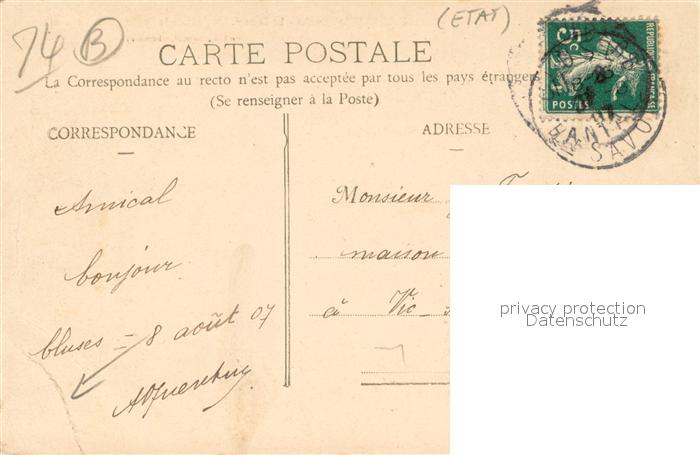 74 B
(ETAT)
CARTE POSTALE
La Correspondance au recto n'est pas acceptée par tous les pays étrangers
(Se renseigner à la Poste)
CORRESPONDANCE
ADRESSE
REPUBLIQUE FRANÇAISE
5c
POSTES
SAVO
Amical
bonjour
cluses = 8 août 07
Monsieur
maison
à Vic-s
privacy protection
Datenschutz